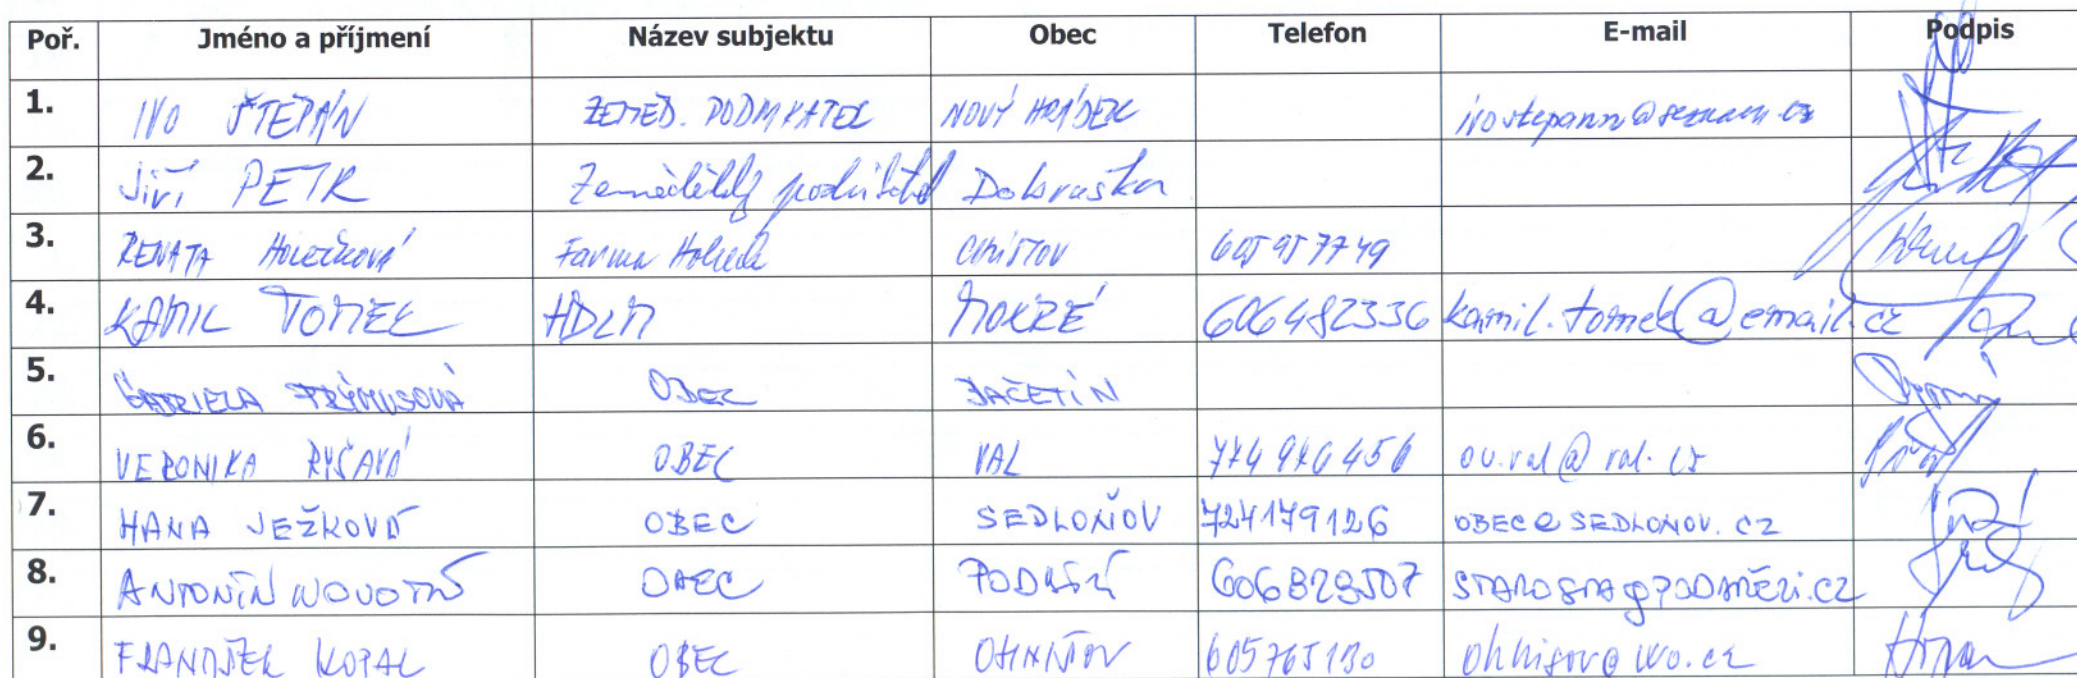 Poř. Jméno a příjmení Název subjektu Obec Telefon E-mail Podpis
1. IVO ŠTĚPÁN ZEMĚD. PODNIKATEL NOVÝ HRÁDEK ivostepann@seznam.cz
2. Jiří PETR Zemědělský podnikatel Dobruška
3. RENATA HOLEČKOVÁ Farma CHLÍSTOV 605957749
4. KAMIL TOMEK HDLM MOKRÉ 606482336 kamil.tomek@email.cz
5. GABRIELA OBEC BAČETÍN
6. VERONIKA RYŠAVÁ OBEC VAL ou.val@val.cz
7. HANA JEŽKOVÁ OBEC SEDLOŇOV 724179126 OBEC@SEDLONOV.CZ
8. ANTONÍN NOVOTNÝ OBEC 606829507
9. FRANTIŠEK KOPAL OBEC OHNIŠOV 605765130